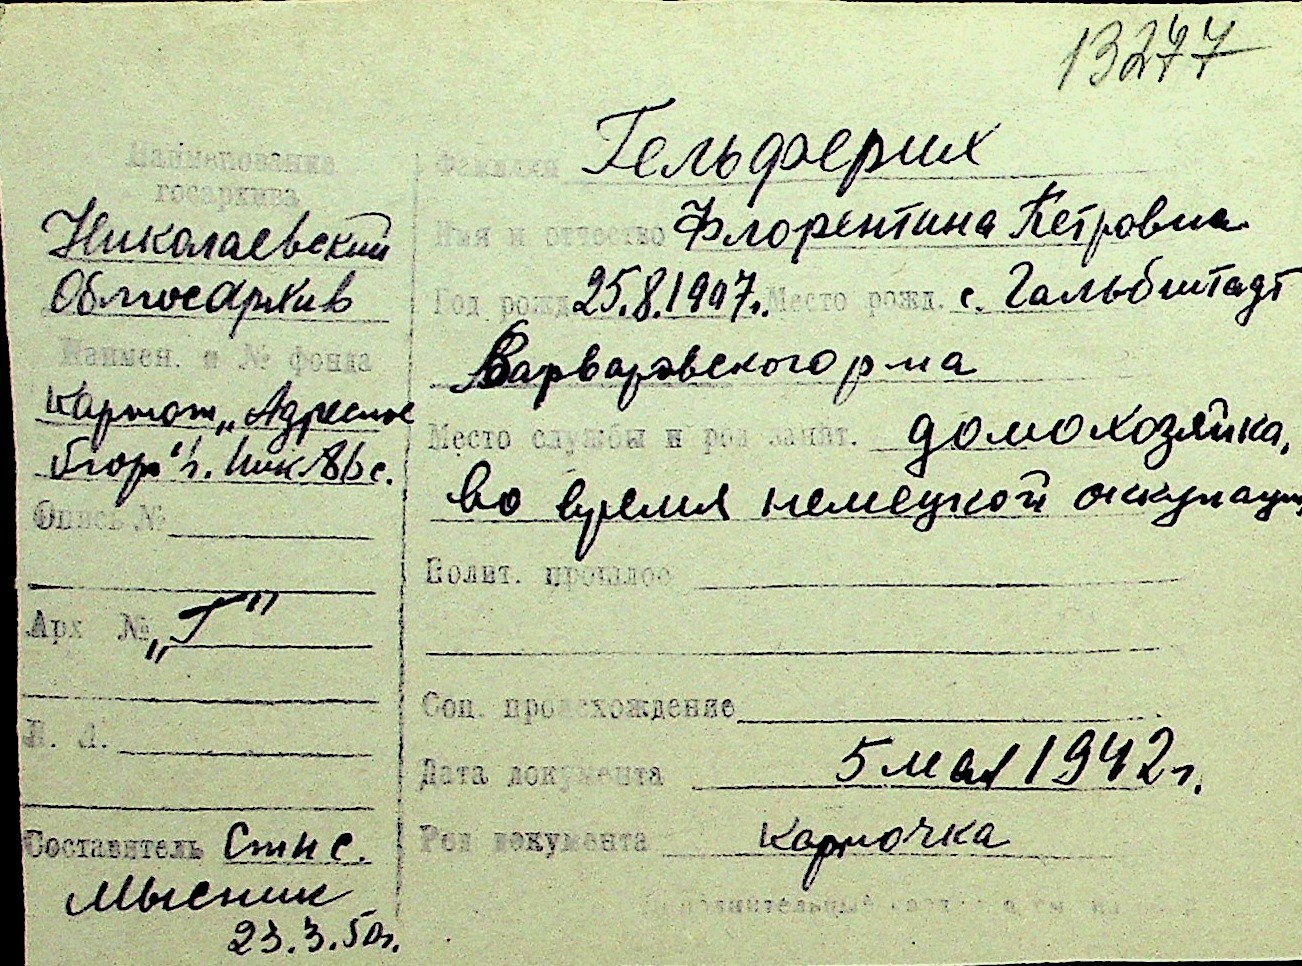 13277
Наименование
госархива
Николаевский
Облгосархив
Наимен. и № фонда
Картот. „Адресное
бюро" г. Ник-
Опись №
Арх №
„Г"
Л. Д.
Составитель Ст н с.
Мысник
23.3.50г.
Фамилия Гельферих
Имя и отчество Флорентина Петровна
Год рожд. 25.8.1907г. Место рожд. с. Гальбштадт
Варваровского р-на
Место службы и род занят. домохозяйка,
во время немецкой оккупации
Полит. прошлое
Соц. происхождение
Дата документа 5 мая 1942г.
Род документа карточка